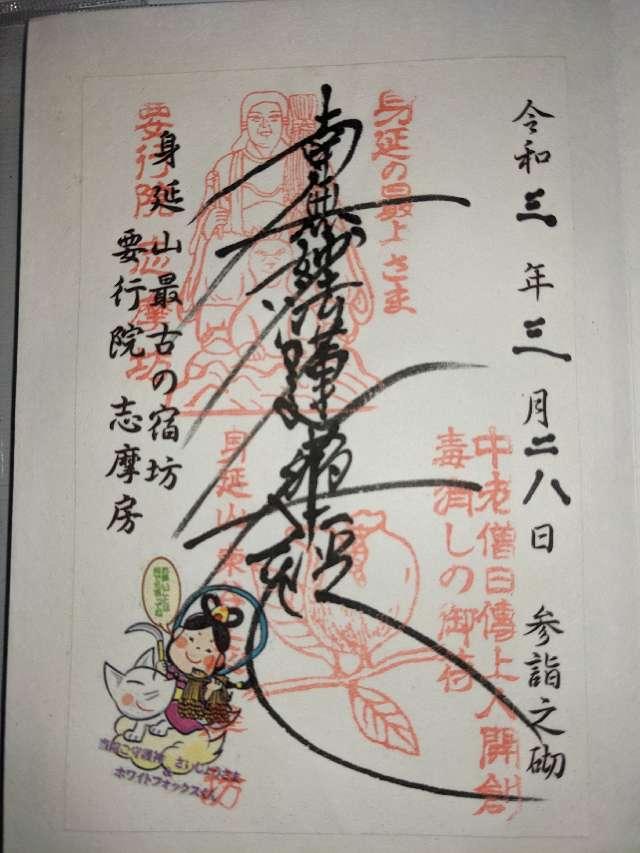 令和三年三月二八日 参詣之砌
身延の最上さま
中老僧日傳上人開創
毒消しの御符
南無妙法蓮華経
要行院 志摩坊
身延山最古の宿坊
要行院 志摩房
当院ご守護神 さいじょうさま
&
ホワイトフォックスくん